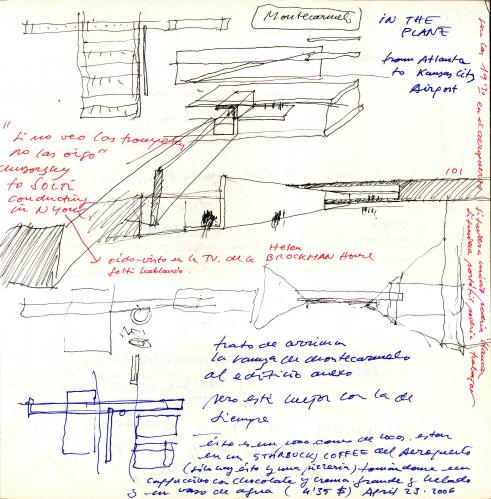 Montecarmelo
in THE
PLANE
from Atlanta
to Kansas City
Airport
"Si no veo las trompetas
no las oigo"
to SOLTI
conducting
in N York
101
oido-visto en la TV. de la Helen BROCKMAN House
Solti hablando.
son las 19:35 en el aeropuerto
trato de arrimar
la rampa de montecarmelo
al edificio anexo
pero está mejor con la de
siempre
esto es un poco como de locos, estar
en un STARBUCKS COFFEE del Aeropuerto
(solo hay ésto y una pizzeria) tomándome un
cappuccino con chocolate y crema grande y helado
y un vaso de agua (4'35 $) April 23. 2006